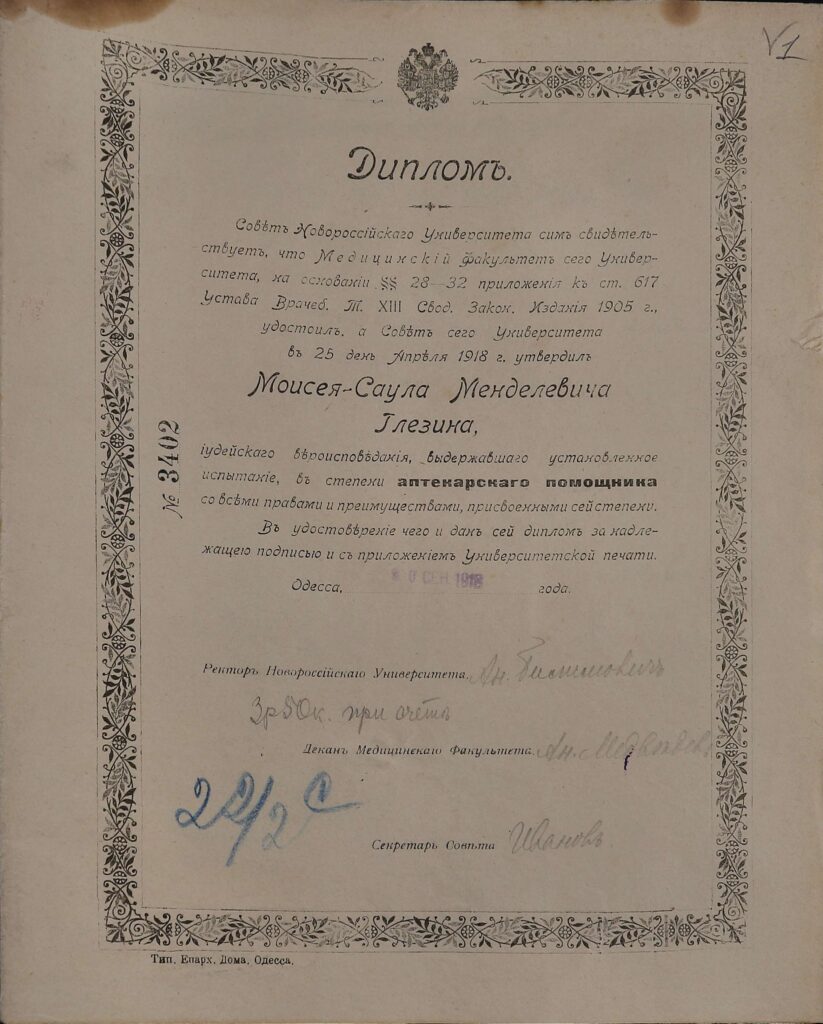 V1
Дипломъ.
Совѣтъ Новороссійскаго Университета симъ свидѣтель-
ствуетъ, что Медицинскій факультетъ сего Универ-
ситета, на основаніи §§ 28—32 приложенія къ ст. 617
Устава Врачеб. Т. XIII Свод. Закон. Изданія 1905 г.,
удостоилъ, а Совѣтъ сего Университета
въ 25 день Апрѣля 1918 г. утвердилъ
Моисея-Саула Менделевича
Глезина,
іудейскаго вѣроисповѣданія, выдержавшаго установленное
испытаніе, въ степени аптекарскаго помощника
со всѣми правами и преимуществами, присвоенными сей степени.
Въ удостовѣреніе чего и данъ сей дипломъ за надле-
жащею подписью и съ приложеніемъ Университетской печати.
Одесса, СЕН 1918 года.
№ 3402
Ректоръ Новороссійскаго Университета Ан.
3р50к. при
Деканъ Медицинскаго Факультета Ан. Медвѣдевъ
22/2 С
Секретарь Совѣта Ивановъ
Тип. Епарх. Дома, Одесса.